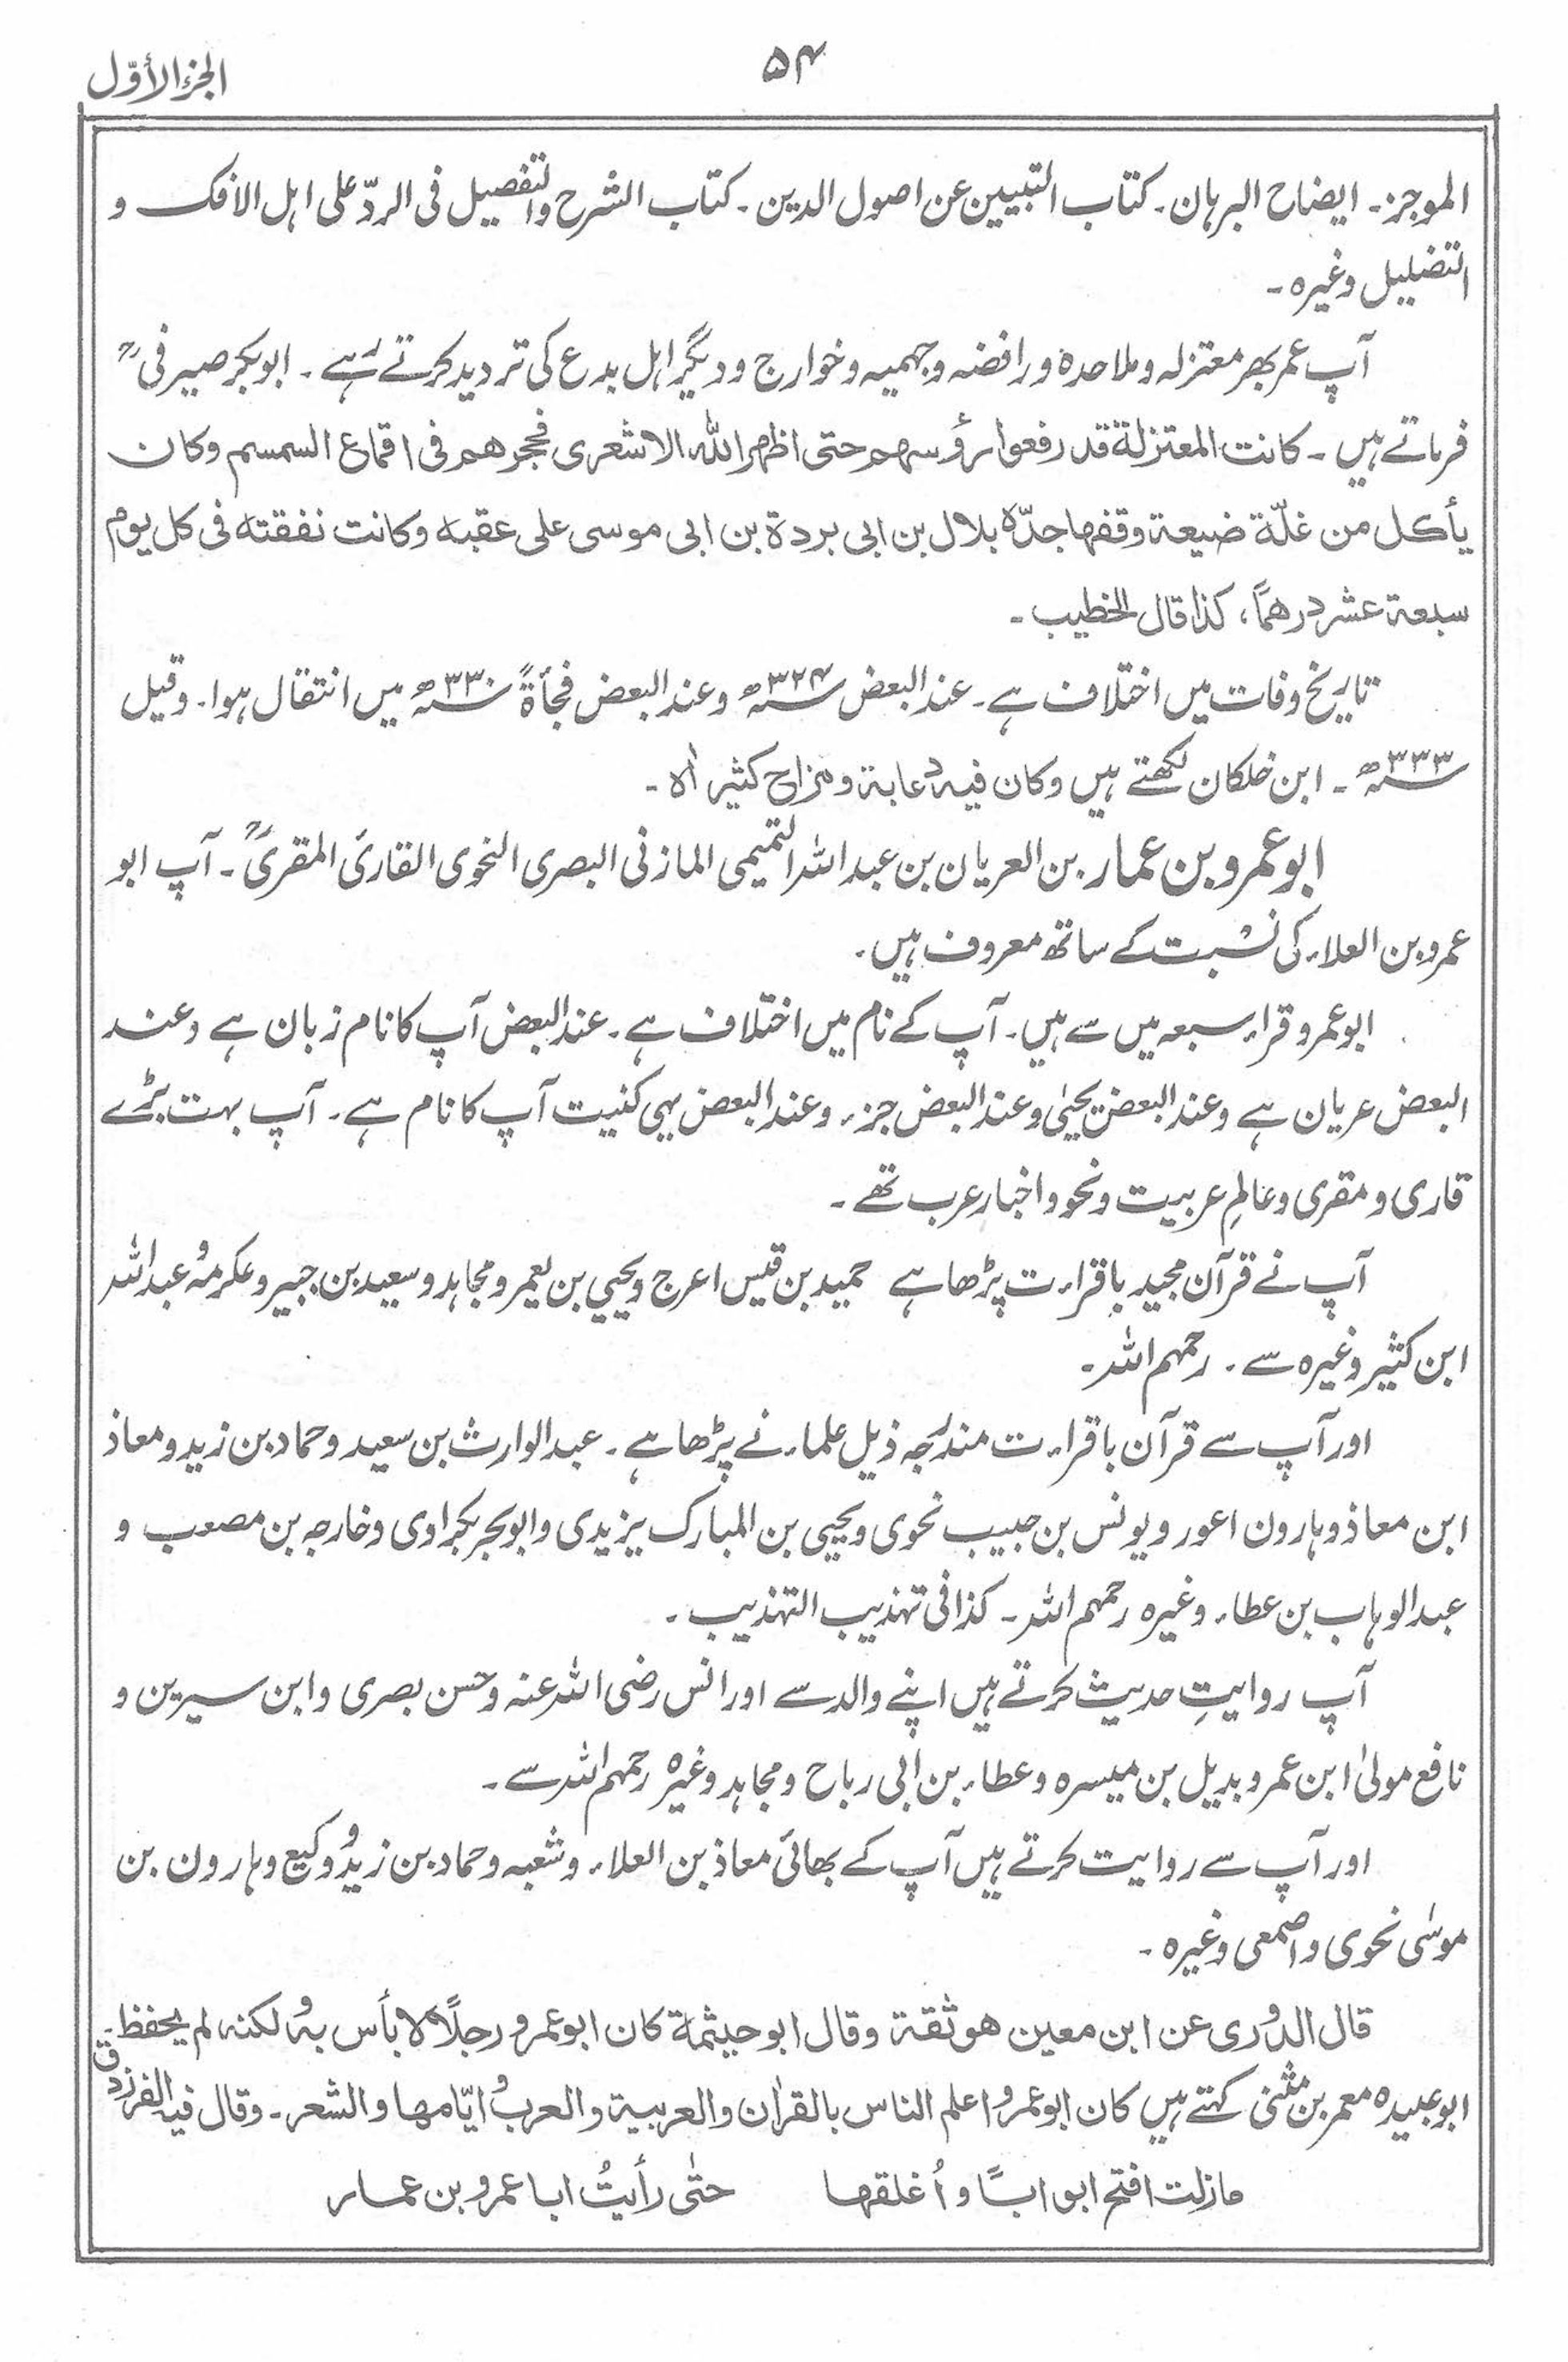 الجزء الأوّل
۵۴
الموجز۔ ایضاح البرہان۔ کتاب التبیین عن اصول الدین۔ کتاب الشرح والتفصیل فی الردّ علی اہل الافک و
التضلیل وغیرہ۔
آپ عمر بھر معتزلہ و ملاحدہ و رافضہ و جہمیہ و خوارج و دیگر اہل بدع کی تردید کرتے رہے۔ ابوبکر صیرفیؒ
فرماتے ہیں۔ کانت المعتزلۃ قد رفعوا رؤسہم حتی اظہر اللہ الاشعری فحجرھم فی اقماع السمسم وکان
یأکل من غلّۃ ضیعۃ وقفھا جدّہ بلال بن ابی بردۃ بن ابی موسی علی عقبہ وکانت نفقتہ فی کل یوم
سبعۃ عشر درھمًا، کذا قال الخطیب۔
تاریخ وفات میں اختلاف ہے۔ عند البعض ۳۲۴ھ وعند البعض فجأۃً ۳۳۰ھ میں انتقال ہوا۔ وقیل
۳۳۳ھ۔ ابن خلکان لکھتے ہیں وکان فیہ دعابۃ ومزاح کثیر اھ۔
ابوعمرو بن عمار بن العریان بن عبداللہ التمیمی المازنی البصری النحوی القاریٔ المقریٔؒ۔ آپ ابو
عمرو بن العلاء کی نسبت کے ساتھ معروف ہیں۔
ابوعمرو قراء سبعہ میں سے ہیں۔ آپ کے نام میں اختلاف ہے۔ عند البعض آپ کا نام زبان ہے وعند
البعض عریان ہے وعند البعض یحییٰ وعند البعض جزء وعند البعض یہی کنیت آپ کا نام ہے۔ آپ بہت بڑے
قاری و مقری و عالمِ عربیت و نحو و اخبار عرب تھے۔
آپ نے قرآن مجید باقراءت پڑھا ہے حمید بن قیس اعرج و یحیی بن یعمر و مجاہد و سعید بن جبیر و عکرمہ و عبداللہ
ابن کثیر وغیرہ سے۔ رحمہم اللہ۔
اور آپ سے قرآن باقراءت مندرجہ ذیل علماء نے پڑھا ہے۔ عبدالوارث بن سعید و حماد بن زید و معاذ
ابن معاذ و ہارون اعور و یونس بن حبیب نحوی و یحیی بن المبارک یزیدی و ابوبحر بکراوی و خارجہ بن مصعب و
عبدالوہاب بن عطاء وغیرہ رحمہم اللہ۔ کذا فی تہذیب التہذیب۔
آپ روایتِ حدیث کرتے ہیں اپنے والد سے اور انس رضی اللہ عنہ و حسن بصری و ابن سیرین و
نافع مولیٰ ابن عمر و بدیل بن میسرہ و عطاء بن ابی رباح و مجاہد وغیرہ رحمہم اللہ سے۔
اور آپ سے روایت کرتے ہیں آپ کے بھائی معاذ بن العلاء و شعبہ و حماد بن زید و وکیع و ہارون بن
موسٰی نحوی و اصمعی وغیرہ۔
قال الدوری عن ابن معین ھو ثقۃ وقال ابو حیثمۃ کان ابوعمرو رجلًا لا بأس بہ ولکنہ لم یحفظ۔
ابوعبیدہ معمر بن مثنی کہتے ہیں کان ابوعمرو اعلم الناس بالقراٰن والعربیۃ والعرب وایّامھا والشعر۔ وقال فیہ الفرزدق
مازلت افتح ابوابًا و اُغلقھا حتّٰی رأیتُ ابا عمرو بن عمار